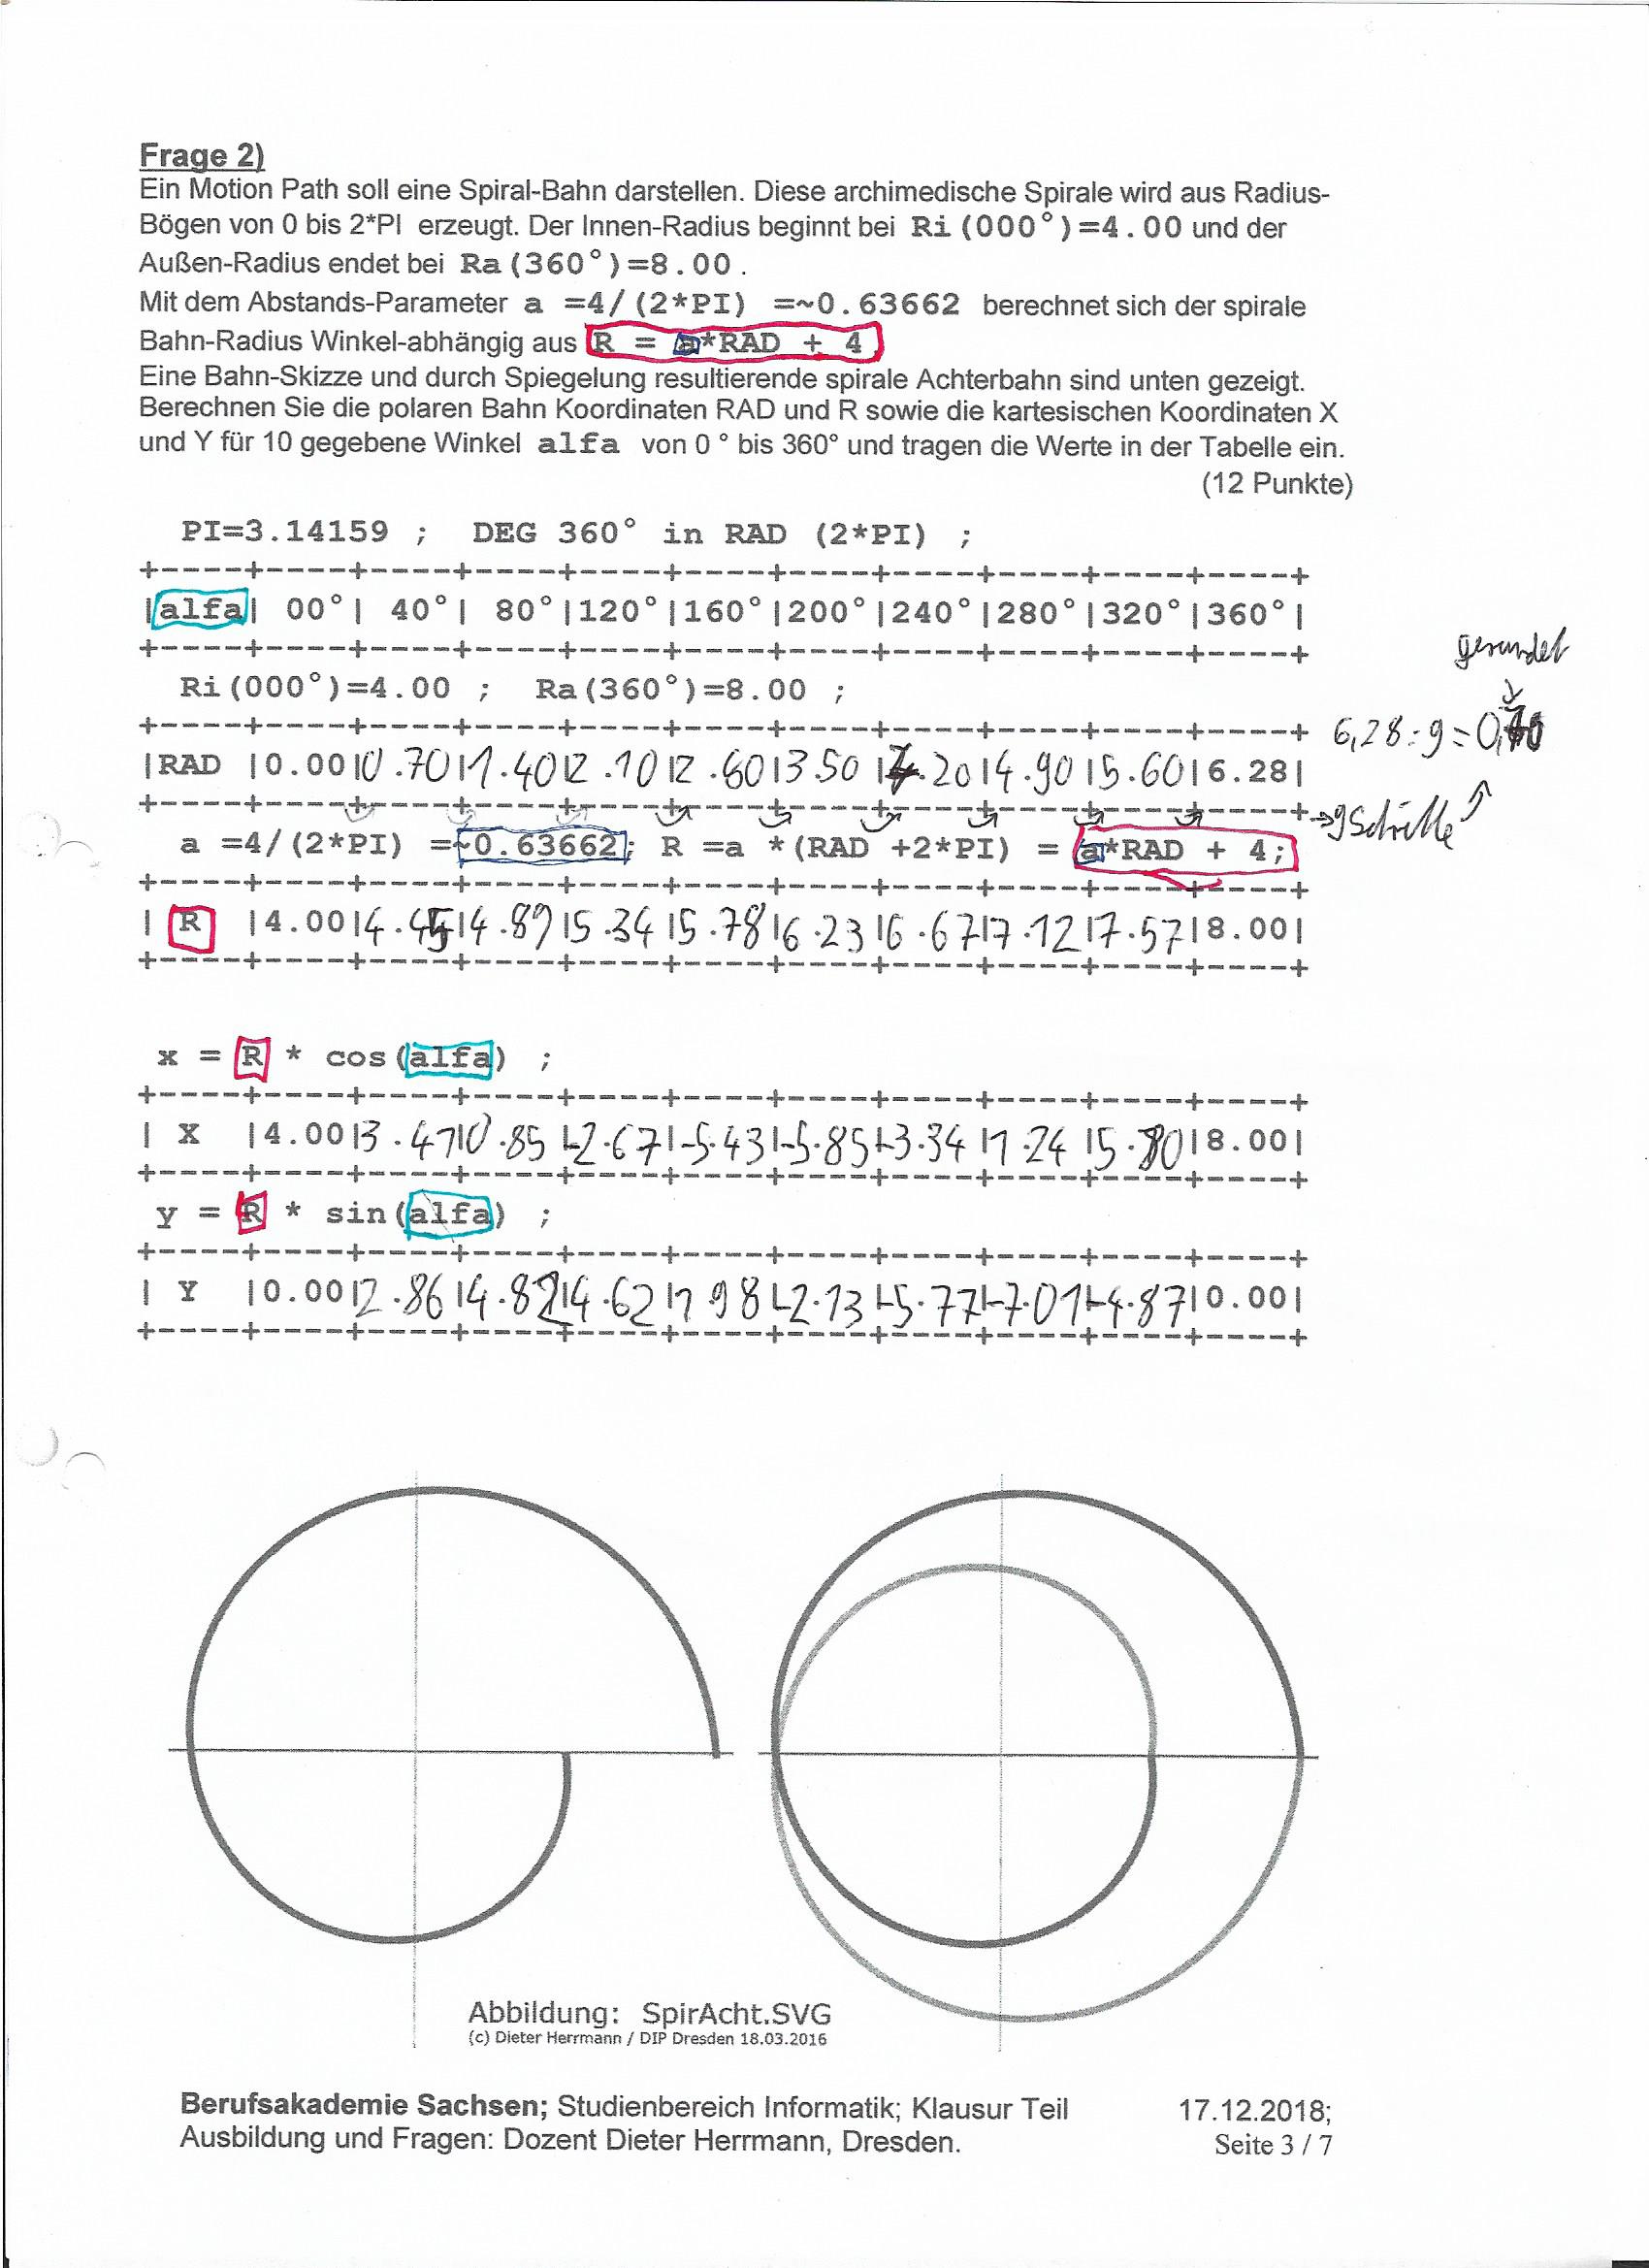 Frage 2)
Ein Motion Path soll eine Spiral-Bahn darstellen. Diese archimedische Spirale wird aus Radius-
Bögen von 0 bis 2*PI erzeugt. Der Innen-Radius beginnt bei Ri(000°)=4.00 und der
Außen-Radius endet bei Ra(360°)=8.00.
Mit dem Abstands-Parameter a =4/(2*PI) =~0.63662 berechnet sich der spirale
Bahn-Radius Winkel-abhängig aus R = a*RAD + 4
Eine Bahn-Skizze und durch Spiegelung resultierende spirale Achterbahn sind unten gezeigt.
Berechnen Sie die polaren Bahn Koordinaten RAD und R sowie die kartesischen Koordinaten X
und Y für 10 gegebene Winkel alfa von 0 ° bis 360° und tragen die Werte in der Tabelle ein.
(12 Punkte)
PI=3.14159 ; DEG 360° in RAD (2*PI) ;
+----+----+----+----+----+----+----+----+----+----+----+
|alfa| 00°| 40°| 80°|120°|160°|200°|240°|280°|320°|360°|
+----+----+----+----+----+----+----+----+----+----+----+
gerundet
Ri(000°)=4.00 ; Ra(360°)=8.00 ;
+----+----+----+----+----+----+----+----+----+----+----+
6,28:9=0,70
|RAD |0.00|0.70|1.40|2.10|2.80|3.50|4.20|4.90|5.60|6.28|
+----+----+----+----+----+----+----+----+----+----+----+
→9 Schritte
a =4/(2*PI) =~0.63662; R =a *(RAD +2*PI) = a*RAD + 4;
+----+----+----+----+----+----+----+----+----+----+----+
| R |4.00|4.45|4.89|5.34|5.78|6.23|6.67|7.12|7.57|8.00|
+----+----+----+----+----+----+----+----+----+----+----+
x = R * cos(alfa) ;
+----+----+----+----+----+----+----+----+----+----+----+
| X |4.00|3.41|0.85|-2.67|-5.43|-5.85|-3.34|1.24|5.80|8.00|
+----+----+----+----+----+----+----+----+----+----+----+
y = R * sin(alfa) ;
+----+----+----+----+----+----+----+----+----+----+----+
| Y |0.00|2.86|4.82|4.62|1.98|-2.13|-5.77|-7.01|-4.87|0.00|
+----+----+----+----+----+----+----+----+----+----+----+
Abbildung: SpirAcht.SVG
(c) Dieter Herrmann / DIP Dresden 18.03.2016
Berufsakademie Sachsen; Studienbereich Informatik; Klausur Teil 17.12.2018;
Ausbildung und Fragen: Dozent Dieter Herrmann, Dresden. Seite 3 / 7